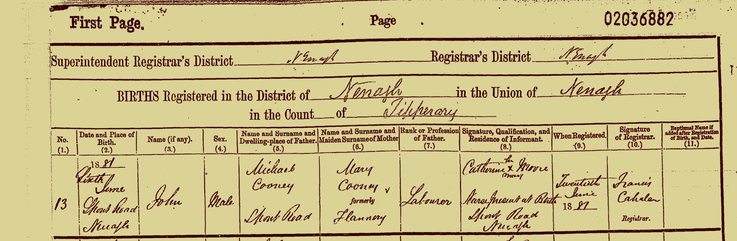 First Page.
Page
02036882
Superintendent Registrar's District Nenagh Registrar's District Nenagh
BIRTHS Registered in the District of Nenagh in the Union of Nenagh
in the Count of Tipperary
No. (1.)
Date and Place of Birth. (2.)
Name (if any). (3.)
Sex. (4.)
Name and Surname and Dwelling-place of Father. (5.)
Name and Surname and Maiden Surname of Mother (6.)
Rank or Profession of Father. (7.)
Signature, Qualification, and Residence of Informant. (8.)
When Registered. (9.)
Signature of Registrar. (10.)
Baptismal Name if added after Registration of Birth, and Date. (11.)
13
1881
June
Spout Road
Nenagh
John
Male
Michael
Cooney
Spout Road
Mary
Cooney
formerly
Flannery
Labourer
Catherine X Moore
Present at Birth
Spout Road
Nenagh
Twentieth
June
1881
Francis
Registrar.